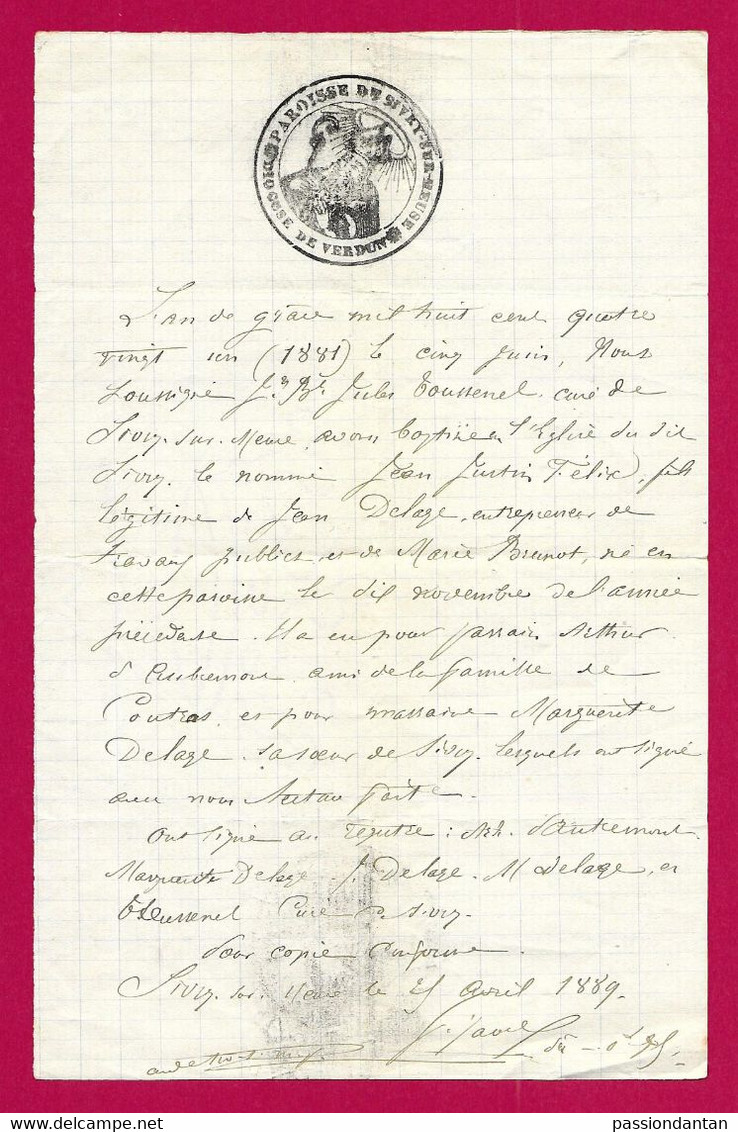 PAROISSE DE SIVRY-SUR-MEUSE
DIOCÈSE DE VERDUN
L'an de grâce mil huit cent quatre
vingt un (1881) le cinq juin, Nous
soussigné Jn Bte Jules Toussenel, curé de
Sivry-sur-Meuse, avons baptisé en l'Eglise du dit
Sivry, le nommé Jean Justin Félix, fils
légitime de Jean Delage, entrepreneur de
travaux publics et de Marie Brunot, né en
cette paroisse le dix novembre de l'année
précédente. Il a eu pour parrain Arthur
d'Autremont ami de la famille de
Coutras, et pour marraine Marguerite
Delage sa sœur de Sivry, lesquels ont signé
avec nous
Ont signé au registre : Arth. d'Autremont.
Marguerite Delage. J. Delage. M Delage, et
Toussenel Curé de Sivry.
Pour copie conforme.
Sivry-sur-Meuse le 25 Avril 1889.